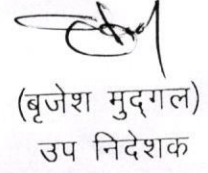 (बृजेश मुद्गल)
उप निदेशक